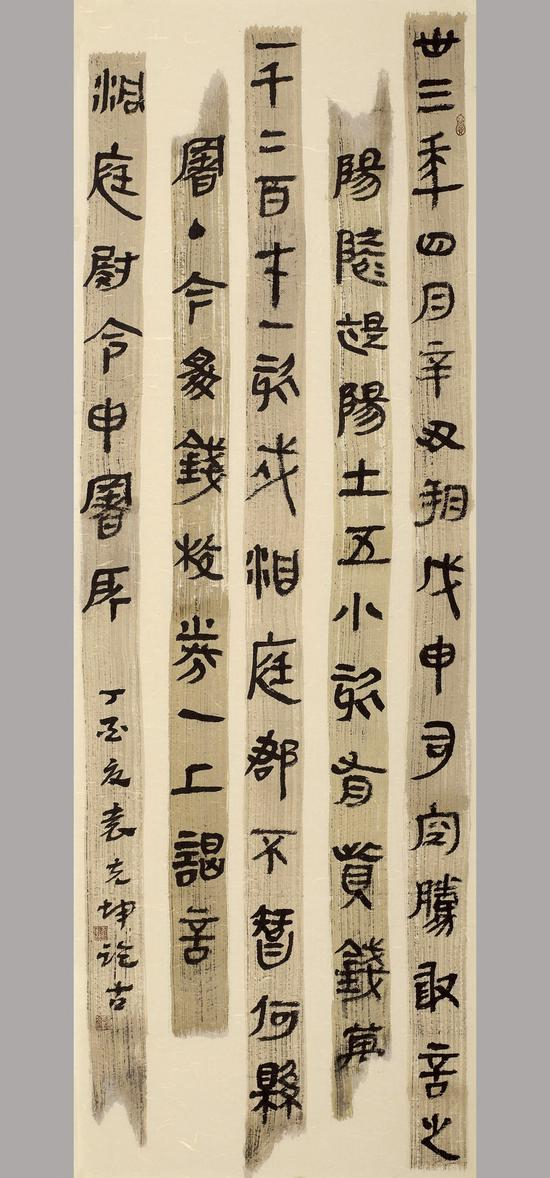 卅三年四月辛丑朔戊申司空騰敢言之
陽陵褆陽士五小欬有貲錢萬
一千二百七十一欬戍洞庭郡不智何縣
署·今為錢校券一上謁言
洞庭尉令申署所
丁酉夏袁克坤古